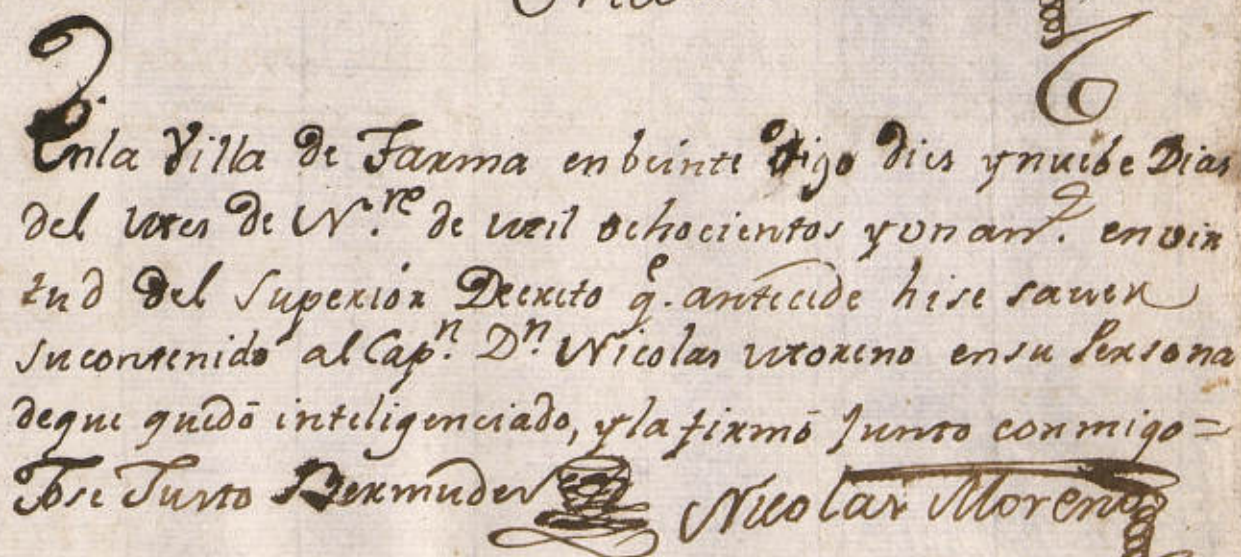 En la Villa de Tarma en beinte digo dies y nuebe Dias
del mes de N.re de mil ochocientos y un an.s en vir
tud del Superiór Decreto q.e antecede hise saver
su contenido al Cap.n D.n Nicolas Moreno en su Persona
de que quedó inteligenciado, y la firmó Junto conmigo =
Jose Justo Bermudes Nicolas Moreno